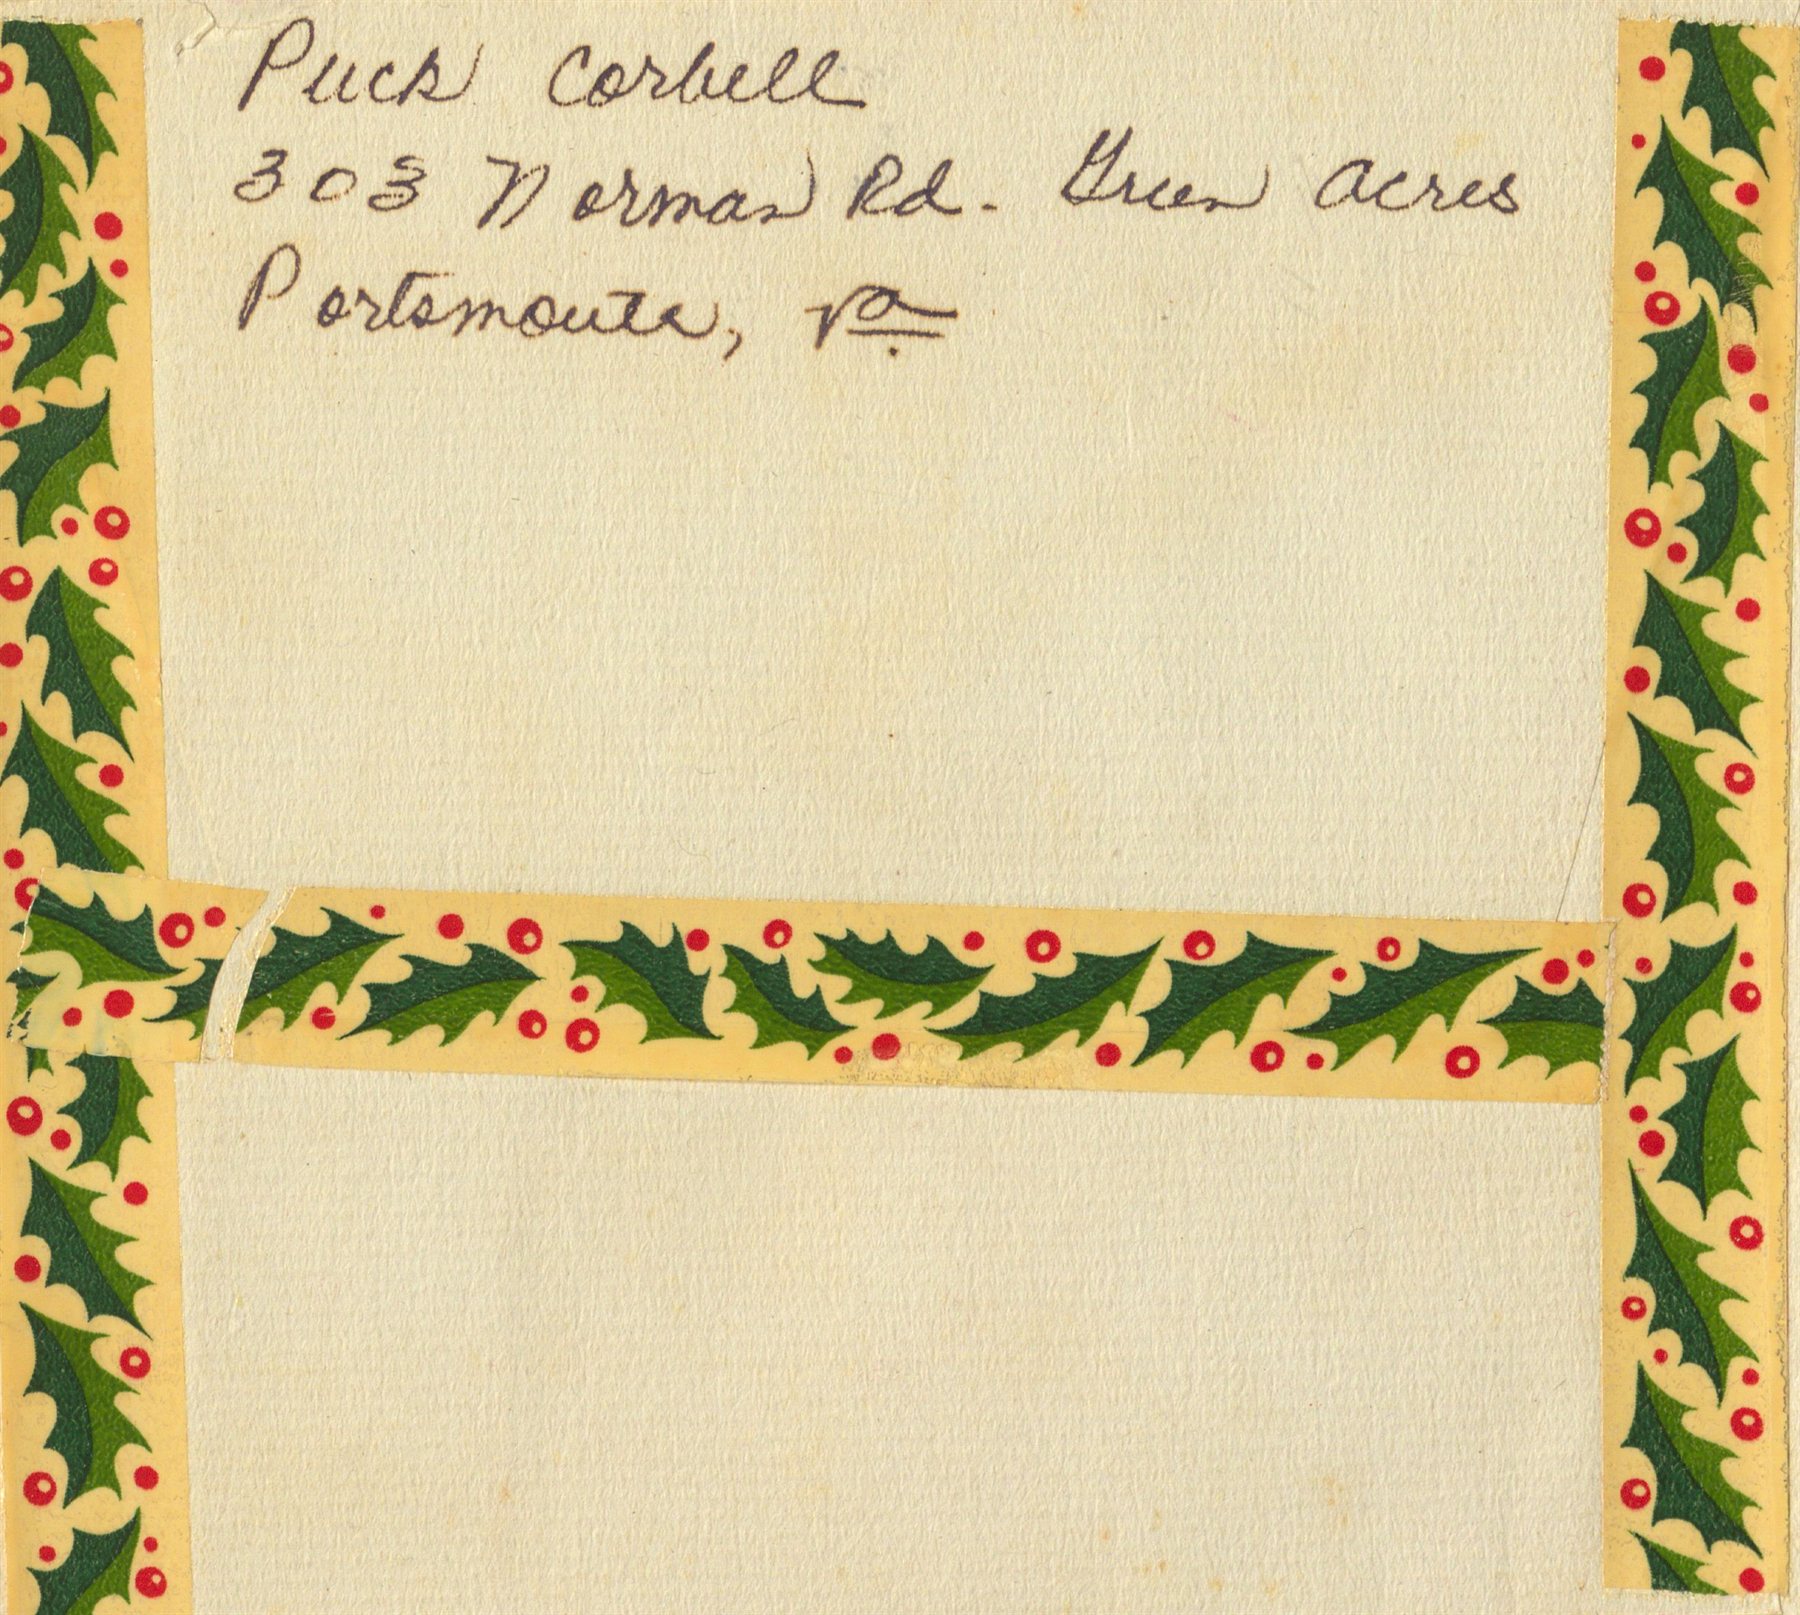 Puck Corbell
303 Norman Rd. Green Acres
Portsmouth, Va.